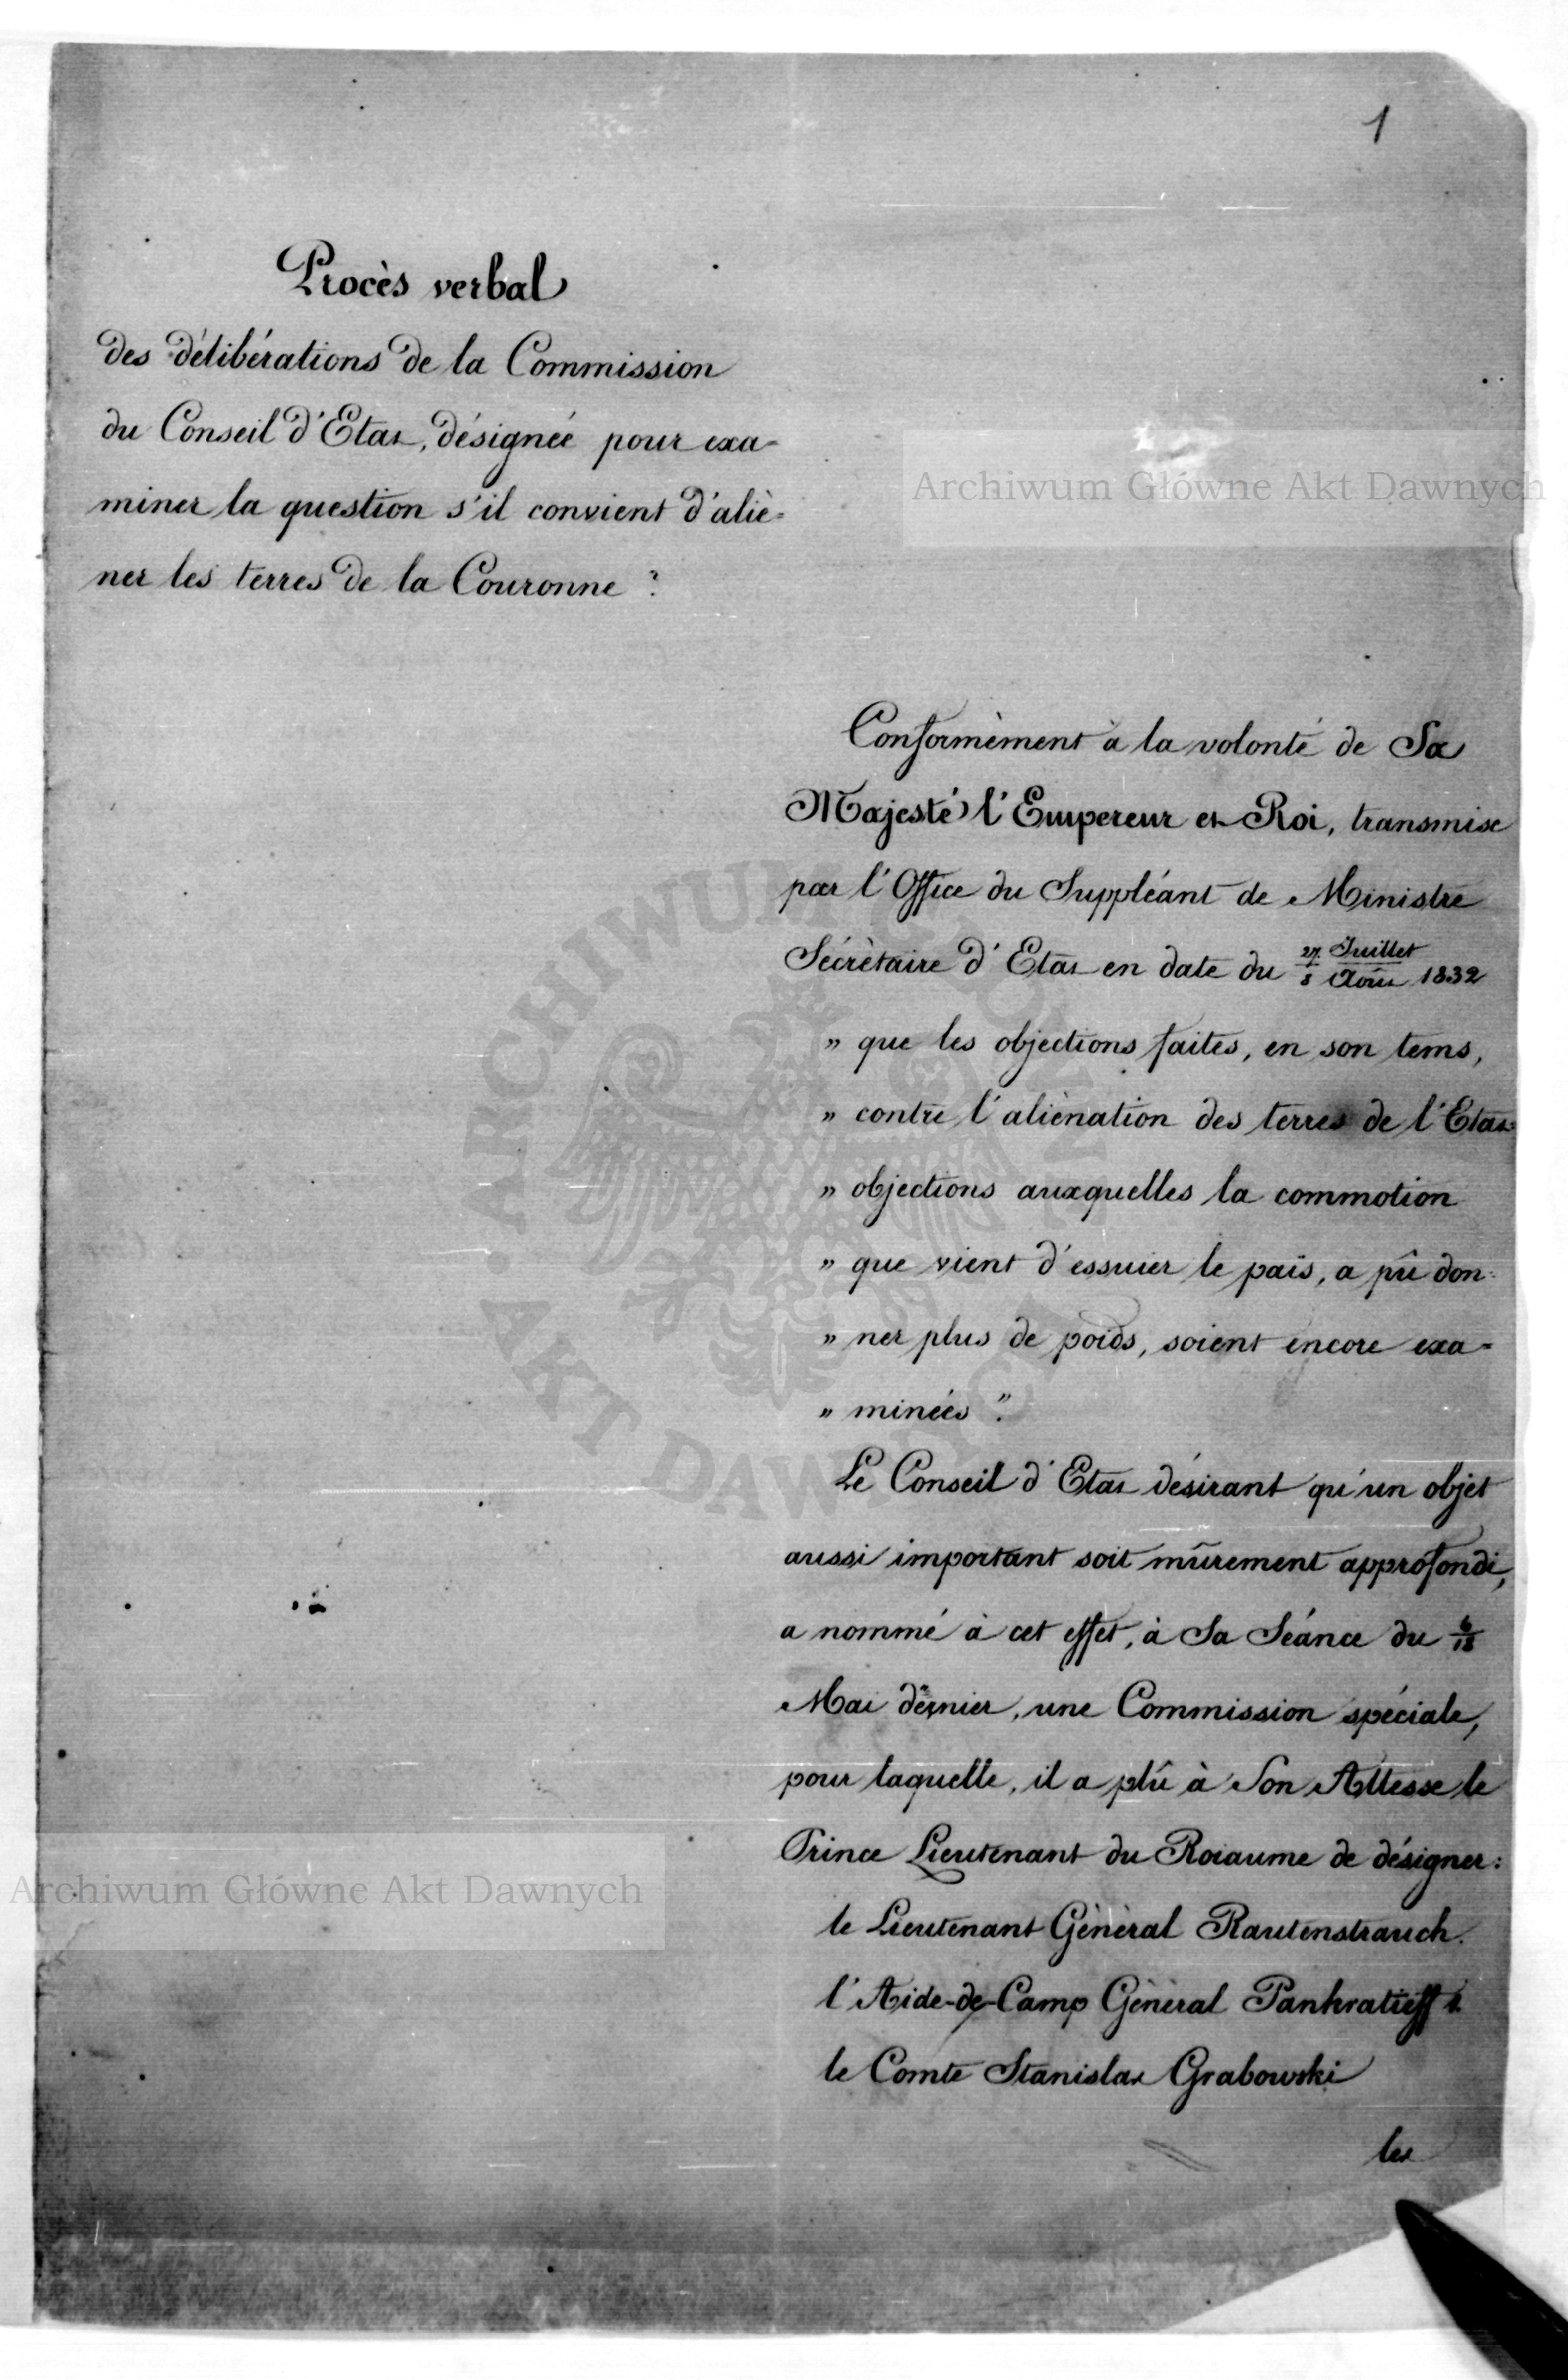 1
Procès verbal
des délibérations de la Commission
du Conseil d'Etat, désignée pour exa-
miner la question s'il convient d'alié-
ner les terres de la Couronne ?
Archiwum Główne Akt Dawnych
Conformèment à la volonté de Sa
Majesté l'Empereur et Roi, transmise
par l'Office du Suppléant de Ministre
Sécrètaire d'Etat en date du 27 Juillet / 8 Août 1832
" que les objections faites, en son tems,
" contre l'aliènation des terres de l'Etat
" objections auxquelles la commotion
" que vient d'essuier le païs, a pû don-
" ner plus de poids, soient encore exa-
" minées ".
Le Conseil d'Etat désirant qu'un objet
aussi important soit mûrement approfondi,
a nommé à cet effet, à Sa Séance du 6/18
Mai dernier, une Commission spéciale,
pour laquelle, il a plû à Son Altesse le
Prince Lieutenant du Roiaume de désigner:
le Lieutenant Général Rautenstrauch.
l'Aide-de-Camp Général Pankratieff
le Comte Stanislas Grabowski
les
Archiwum Główne Akt Dawnych
ARCHIWUM GŁÓWNE
AKT DAWNYCH